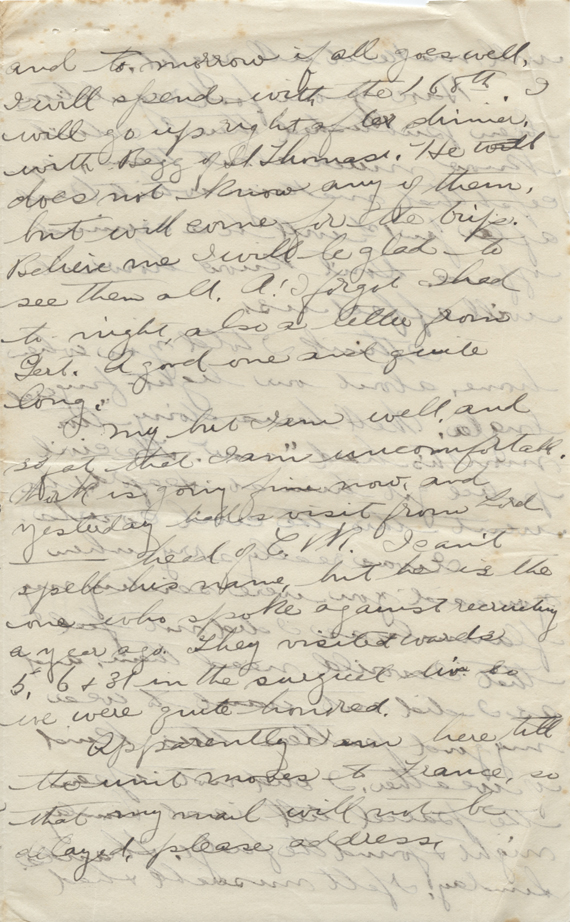 and to-morrow if all goes well,
I will spend with the 168th. I
will go up right after dinner,
with Begg of St Thomas. He will
does not know any of them,
but will come for the trip.
Believe me I will be glad to
see them all. A! I forgot I had
to night, also a letter from
Gert. A good one and quite
long.
My but I am well, and
so at that I am uncomfortable.
Work is going fine now, and
yesterday had a visit from Lord
head of C.W. I can't
spell his name, but he is the
one who spoke against recruiting
a year ago. They visited wards
5, 6 & 31 in the surgical div. so
we were quite honored.
Apparently am here till
the unit moves to France, so
that my mail will not be
delayed, please address,